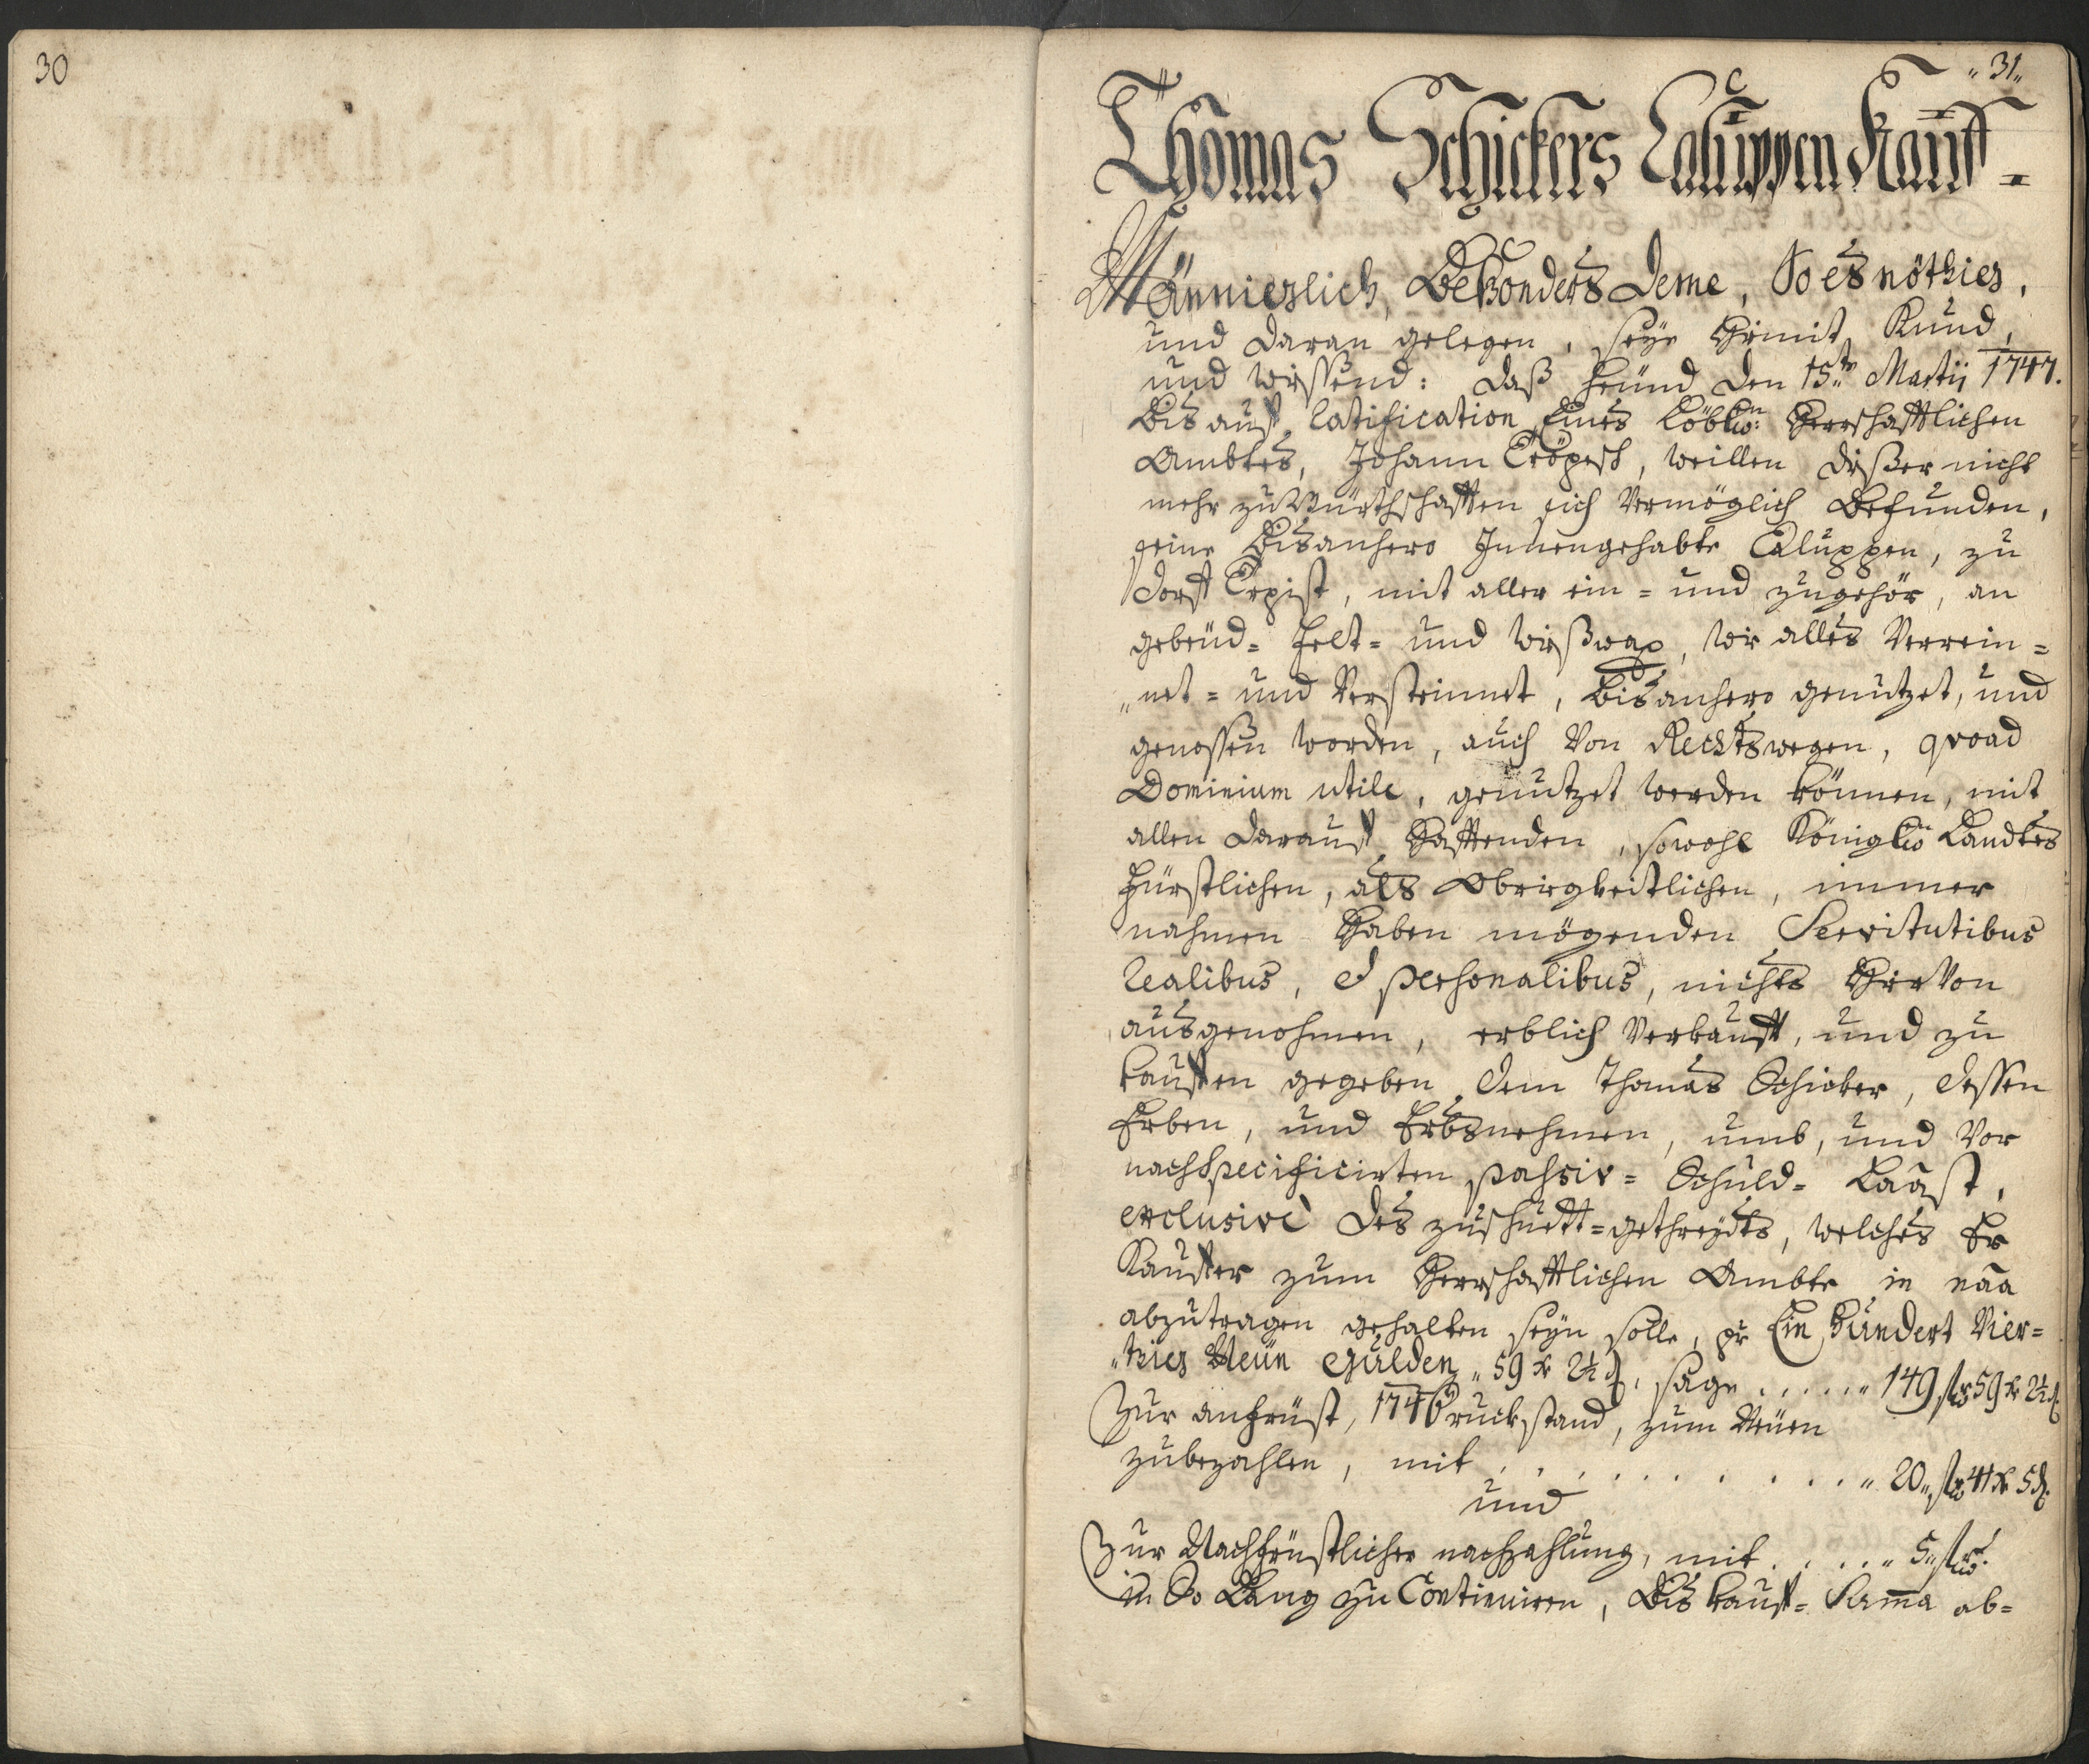 30
„31„
Thomas Schickers Caluppen Kauff=
Männiglich, Besonders deme, So es nöthig,
und daran gelegen, seye hiemit Kund,
und wissend: daß heünd den 15ten Martii 1747.
Bis auf Ratification Eines Löbln: Herrschafftlichen
Ambtes, Johann Tröpesch, weillen dißer nicht
mehr zu Würthschafften sich Vermöglich Befunden,
seine Bisanhero Innengehabte Caluppen, zu
dorff Tepist, mit aller ein= und zugehör, an
gebeüd= Felt= und wießwax, wie alles Verrein=
„net= und Versteinnet, bisanhero genützet, und
genossen worden, auch Von Rechtswegen, quoad
Dominium utile, genützet werden können, mit
allen darauf hafftenden, sowohl Königln Landtes
Fürstlichen, als Obrigkeitlichen, immer
nahmen haben mögenden Servitutibus
realibus, et personalibus, nichts hieVon
ausgenohmen, erblich Verkaufft, und zu
kauffen gegeben dem Thomas Schicker, dessen
Erben, und Erbsnehmen, umb, und Vor
nachspecificirten passiv= Schuld= Laast,
exclusivè des zuschuett=gethreydts, welches Er
Kauffer zum Herrschafftlichen Ambte in naa
abzutragen gehalten seyn solle, pr Ein hundert Vier=
„tzig Neün Gulden „59 xr 2½ d, sage ..... „149 fl 59 xr 2½ d.
Zur anfrüst, 1746 ruckstand, zum Neüen
zubezahlen, mit ............ „20„ fl 41 xr 5 d.
und
Zur Nachfrüstlicher nachzahlung, mit ..... „5„ fl.
in So Lang zu Continuiren, Bis kauff= Suma ab=